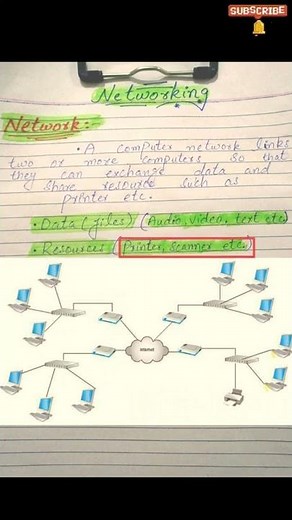 SUBSCRIBE
Networking
Network:
• A computer network links
two or more computers so that
they can exchange data and
share resource such as
printer etc.
• Data (files) (Audio, video, text etc)
• Resources (Printer, scanner etc.)
Internet